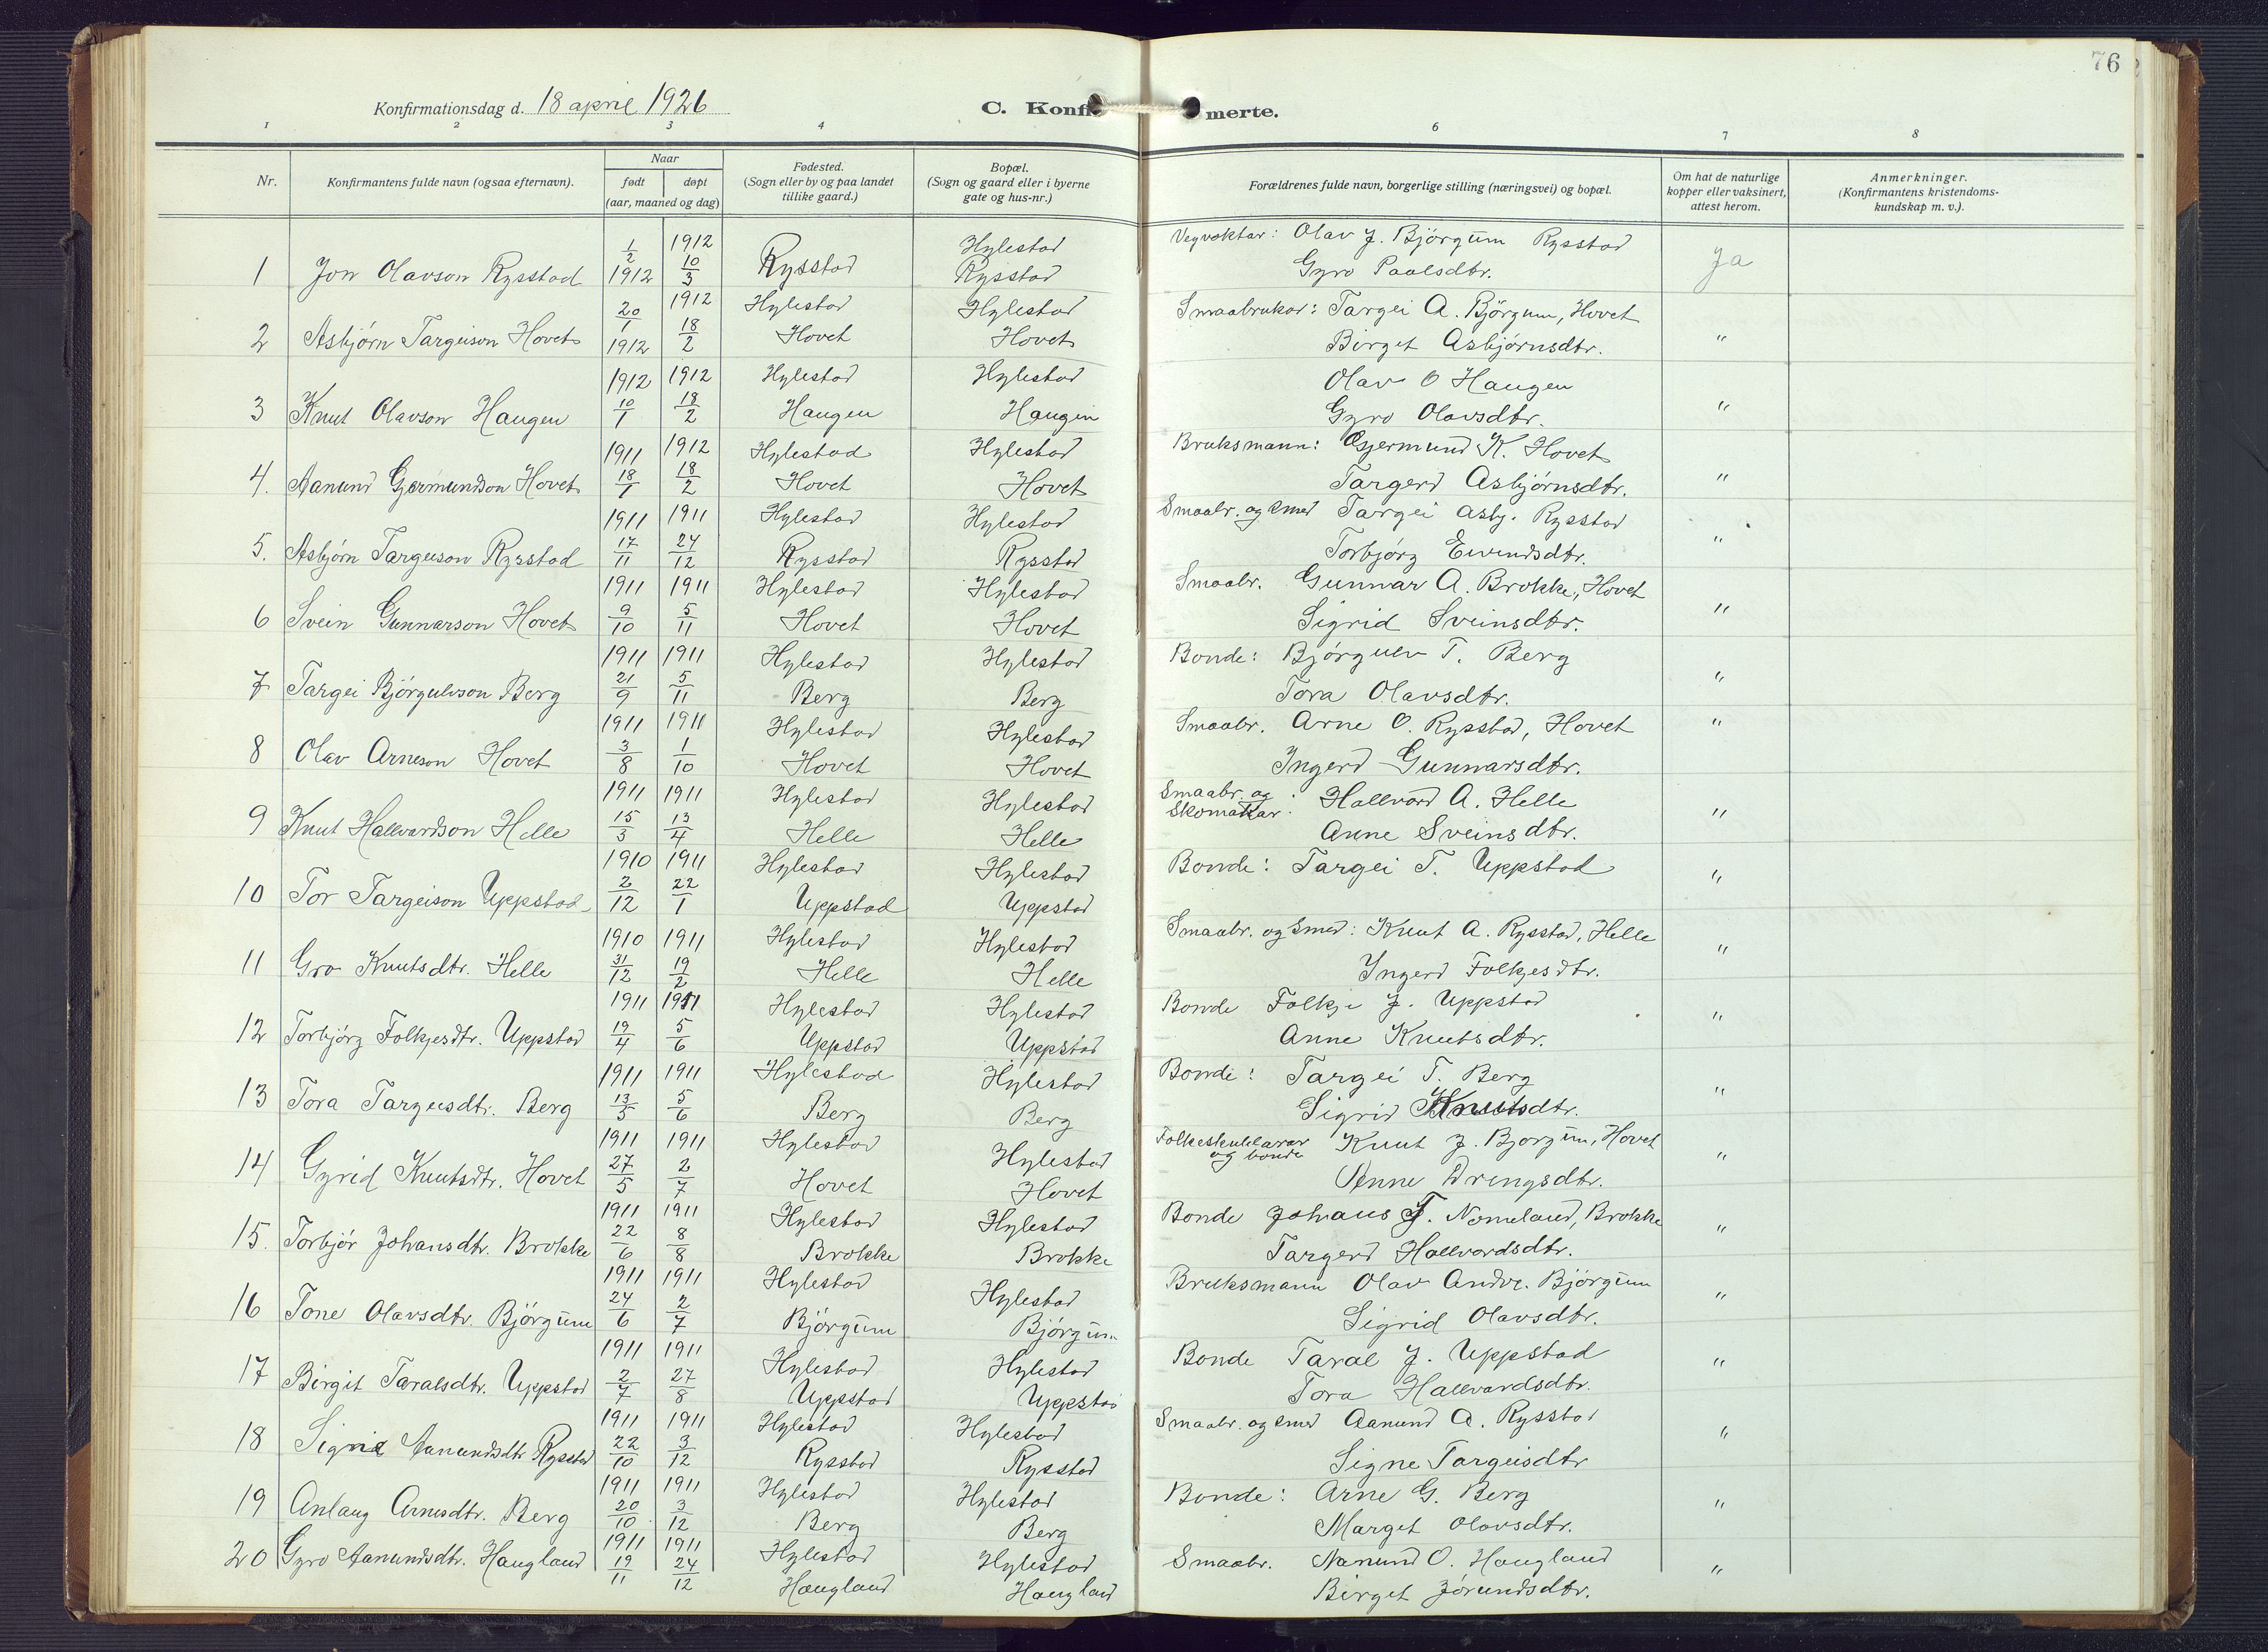 76
Konfirmationsdag d. 18 april 1926
C. Konfi merte.
1 2 3 4 6 7 8
Nr.
Konfirmantens fulde navn (ogsaa efternavn).
Naar
født døpt
(aar, maaned og dag)
Fødested.
(Sogn eller by og paa landet
tillike gaard.)
Bopæl.
(Sogn og gaard eller i byerne
gate og hus-nr.)
Forældrenes fulde navn, borgerlige stilling (næringsvei) og bopæl.
Om hat de naturlige
kopper eller vaksinert,
attest herom.
Anmerkninger.
(Konfirmantens kristendoms-
kundskap m. v.).
1 Jon Olavson Rysstad 1/2 1912 1912 10/3 Rysstad Hylestad Rysstad Vegvoktar: Olav J. Björgum Rysstad Ja
Gyro Paalsdtr.
2 Asbjørn Targeison Hovet 20/1 1912 1912 18/2 Hylestad Hovet Hylestad Hovet Smaabrukar: Targei A. Björgum, Hovet "
Birget Asbjørnsdtr.
3 Knut Olavson Haugen 1912 10/1 1912 18/2 Hylestad Haugen Hylestad Haugen Olav O Haugen "
Gyro Olavsdtr.
4. Aanund Gjermundson Hovet 1911 18/1 1912 18/2 Hylestad Hovet Hylestad Hovet Bruksmann: Gjermund K. Hovet "
Targerd Asbjørnsdtr.
5. Asbjørn Targeison Rysstad 1911 17/11 1911 24/12 Hylestad Rysstad Hylestad Rysstad Smaabr. og smed Targei Asbj. Rysstad "
Torbjørg Eivindsdtr.
6 Svein Gunnarson Hovet 1911 9/10 1911 5/11 Hylestad Hovet Hylestad Hovet Smaabr. Gunnar A. Brokke, Hovet "
Sigrid Sveinsdtr.
7 Targei Björgulvson Berg 1911 21/9 1911 5/11 Hylestad Berg Hylestad Berg Bonde: Bjørgulv T. Berg "
Tora Olavsdtr.
8 Olav Arneson Hovet 1911 3/8 1911 1/10 Hylestad Hovet Hylestad Hovet Smaabr. Arne O. Rysstad, Hovet "
Ingerd Gunnarsdtr.
9 Knut Hallvardson Helle 1911 15/3 1911 13/4 Hylestad Helle Hylestad Helle Smaabr. og Skomakar: Hallvard A. Helle "
Anne Sveinsdtr.
10 Tor Targeison Uppstad 1910 2/12 1911 22/1 Hylestad Uppstad Hylestad Uppstad Bonde: Targei T. Uppstad "
11 Gro Knutsdtr. Helle 1910 31/12 1911 19/2 Hylestad Helle Hylestad Helle Smaabr. og smed: Knut A. Rysstad, Helle "
Ingerd Folkjesdtr.
12 Torbjørg Folkjesdtr. Uppstad 1911 19/4 1911 5/6 Hylestad Uppstad Hylestad Uppstad Bonde Folkje J. Uppstad "
Anne Knutsdtr.
13 Tora Targeisdtr. Berg 1911 13/5 1911 5/6 Hylestad Berg Hylestad Berg Bonde: Targei T. Berg "
Sigrid Knutsdtr.
14 Gyrid Knutsdtr. Hovet 1911 27/5 1911 2/7 Hylestad Hovet Hylestad Hovet Folkeskulelærar og bonde Knut J. Bjorgum, Hovet "
Anne Dringsdtr.
15. Torbjør Johansdtr. Brokke 1911 22/6 1911 8/8 Hylestad Brokke Hylestad Brokke Bonde Johans T. Nomeland, Brokke "
Targerd Hallvardsdtr.
16 Tone Olavsdtr. Björgum 1911 24/6 1911 2/7 Hylestad Björgum Hylestad Björgum Bruksmann Olav Andr. Björgum "
Sigrid Olavsdtr.
17 Birgit Taralsdtr. Uppstad 1911 2/7 1911 27/8 Hylestad Uppstad Hylestad Uppstad Bonde Taral J. Uppstad "
Tora Hallvardsdtr.
18 Aanundsdtr Rysstad 1911 22/10 1911 3/12 Hylestad Rysstad Hylestad Rysstad Smaabr. og smed Aanund A. Rysstad "
Signe Targeisdtr
19 Anlaug Arnesdtr. Berg 1911 20/10 1911 3/12 Hylestad Berg Hylestad Berg Bonde: Arne G. Berg "
Marget Olavsdtr.
20 Gyro Aanundsdtr. Haugland 1911 19/11 1911 24/12 Hylestad Haugland Hylestad Haugland Smaabr. Aanund O. Haugland "
Birget Jörundsdtr.